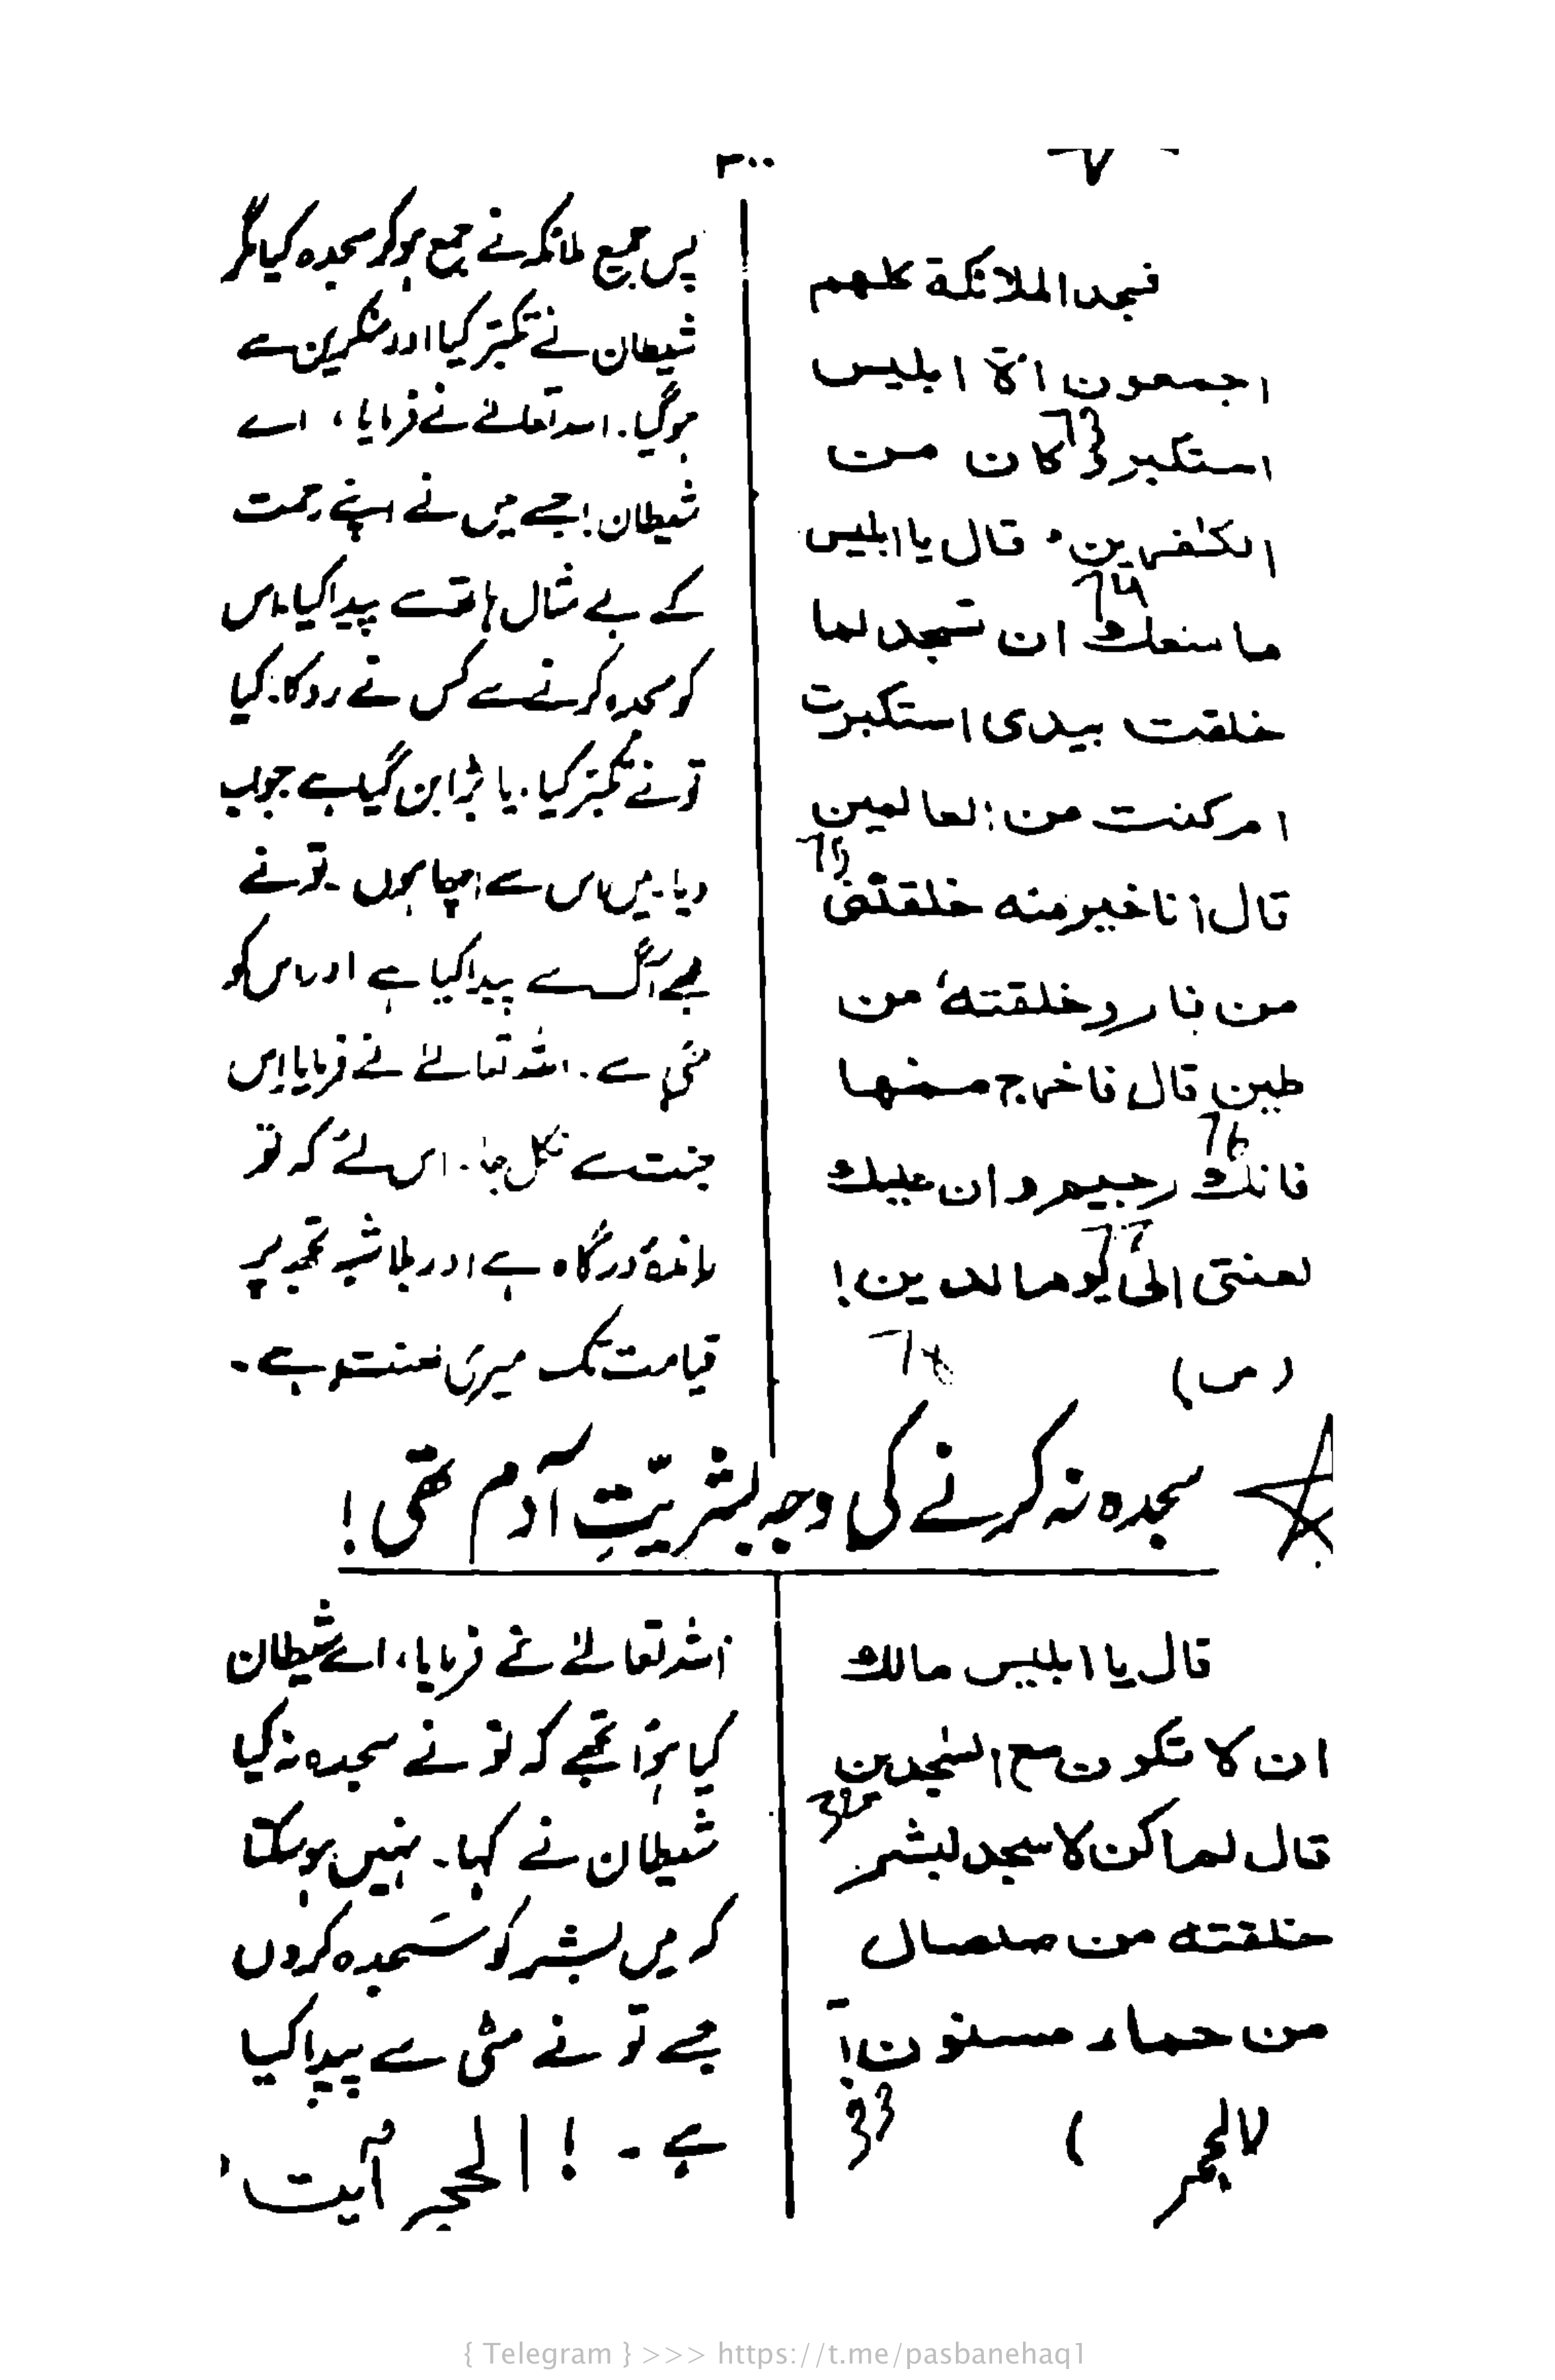 ۳۰۰
فسجد الملائکة کلهم
اجمعون الا ابلیس
73
استکبر و کان من
الکٰفرین ۰ قال یا ابلیس
74
ما منعك ان تسجد لما
خلقت بیدی استکبرت
ام کنت من العالمین
75
قال انا خیر منه خلقتنی
من نار و خلقته، من
طین قال فاخرج منها
76
فانك رجیم و ان علیك
77
لعنتی الی یوم الدین!
(ص)
78
پس جمیع ملائکہ نے جمع ہو کر سجدہ کیا مگر
شیطان نے تکبّر کیا اور منکرین سے
ہو گیا۔ اللہ تعالےٰ نے فرمایا، اے
شیطان! جسے میں نے اپنے رحمت
کے بے مثال ہاتھ سے پیدا کیا، اس
کو سجدہ کرنے سے کس نے روکا۔ کیا
تو نے تکبّر کیا۔ یا بڑا بن گیا ہے جواب
دیا۔ میں اس سے اچھا ہوں۔ تو نے
مجھے آگ سے پیدا کیا ہے اور اس کو
مٹی سے۔ اللہ تعالےٰ نے فرمایا اس
جنت سے نکل جا۔ اس لئے کہ تو
راندۂ درگاہ ہے اور بلاشبہ تجھ پر
قیامت تک میری لعنت ہے۔
سجدہ نہ کرنے کی وجہ بشریّتِ آدم تھی!
قال یا ابلیس مالك
ان لا تکون مع السٰجدین
32
قال لم اکن لاسجد لبشر
خلقته من صلصال
من حماء مسنون!
(الحجر)
33
اللہ تعالےٰ نے فرمایا، اے شیطان
کیا ہوا تجھے کہ تو نے سجدہ نہ کیا
شیطان نے کہا۔ نہیں ہو سکتا
کہ میں بشر کو سَجدہ کروں
جسے تو نے مٹی سے پیدا کیا
ہے۔! الحجر آیت
{ Telegram } >>> https://t.me/pasbanehaq1